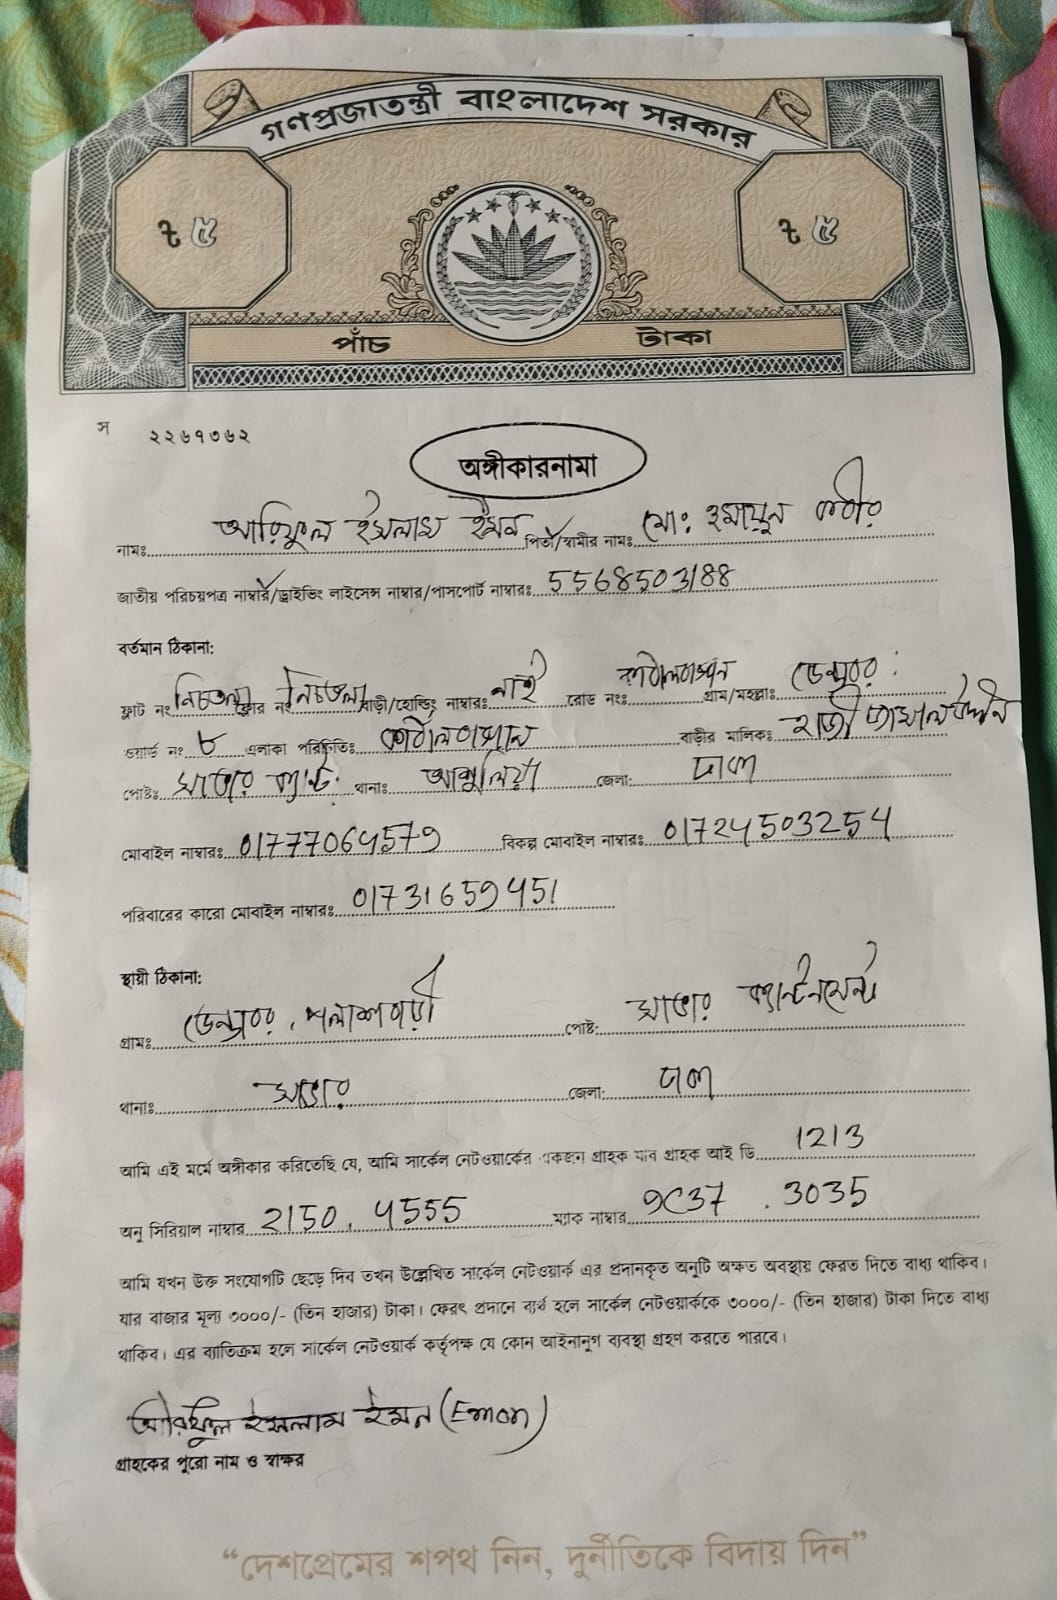 গণপ্রজাতন্ত্রী বাংলাদেশ সরকার
৳ ৫ ৳ ৫
পাঁচ টাকা
স ২২৬৭৩৬২
অঙ্গীকারনামা
নামঃ আরিফুল ইসলাম ইমন পিতা/স্বামীর নামঃ মোঃ হুমায়ুন কবীর
জাতীয় পরিচয়পত্র নাম্বার/ড্রাইভিং লাইসেন্স নাম্বার/পাসপোর্ট নাম্বারঃ 5568503188
বর্তমান ঠিকানা:
ফ্লাট নং নিচতলা ফ্লোর নং নিচতলা বাড়ী/হোল্ডিং নাম্বারঃ নাই রোড নংঃ কাঠালবাগান গ্রাম/মহল্লাঃ ডেন্ডাবর
ওয়ার্ড নং ৮ এলাকা পরিচিতিঃ কাঠালবাগান বাড়ীর মালিকঃ হাজী জামাল উদ্দীন
পোষ্টঃ সাভার ক্যান্ট: থানাঃ আশুলিয়া জেলা: ঢাকা
মোবাইল নাম্বারঃ 01777064579 বিকল্প মোবাইল নাম্বারঃ 01724503254
পরিবারের কারো মোবাইল নাম্বারঃ 01731659451
স্থায়ী ঠিকানা:
গ্রামঃ ডেন্ডাবর, পলাশবাড়ী পোষ্ট: সাভার ক্যান্টনমেন্ট
থানাঃ সাভার জেলা: ঢাকা
আমি এই মর্মে অঙ্গীকার করিতেছি যে, আমি সার্কেল নেটওয়ার্কের একজন গ্রাহক যার গ্রাহক আই ডি 1213
অনু সিরিয়াল নাম্বার 2150. 4555 ম্যাক নাম্বার 9C37 . 3035
আমি যখন উক্ত সংযোগটি ছেড়ে দিব তখন উল্লেখিত সার্কেল নেটওয়ার্ক এর প্রদানকৃত অনুটি অক্ষত অবস্থায় ফেরত দিতে বাধ্য থাকিব।
যার বাজার মূল্য ৩০০০/- (তিন হাজার) টাকা। ফেরৎ প্রদানে ব্যর্থ হলে সার্কেল নেটওয়ার্ককে ৩০০০/- (তিন হাজার) টাকা দিতে বাধ্য
থাকিব। এর ব্যাতিক্রম হলে সার্কেল নেটওয়ার্ক কর্তৃপক্ষ যে কোন আইনানুগ ব্যবস্থা গ্রহণ করতে পারবে।
আরিফুল ইসলাম ইমন (Emon)
গ্রাহকের পুরো নাম ও স্বাক্ষর
“দেশপ্রেমের শপথ নিন, দুর্নীতিকে বিদায় দিন”